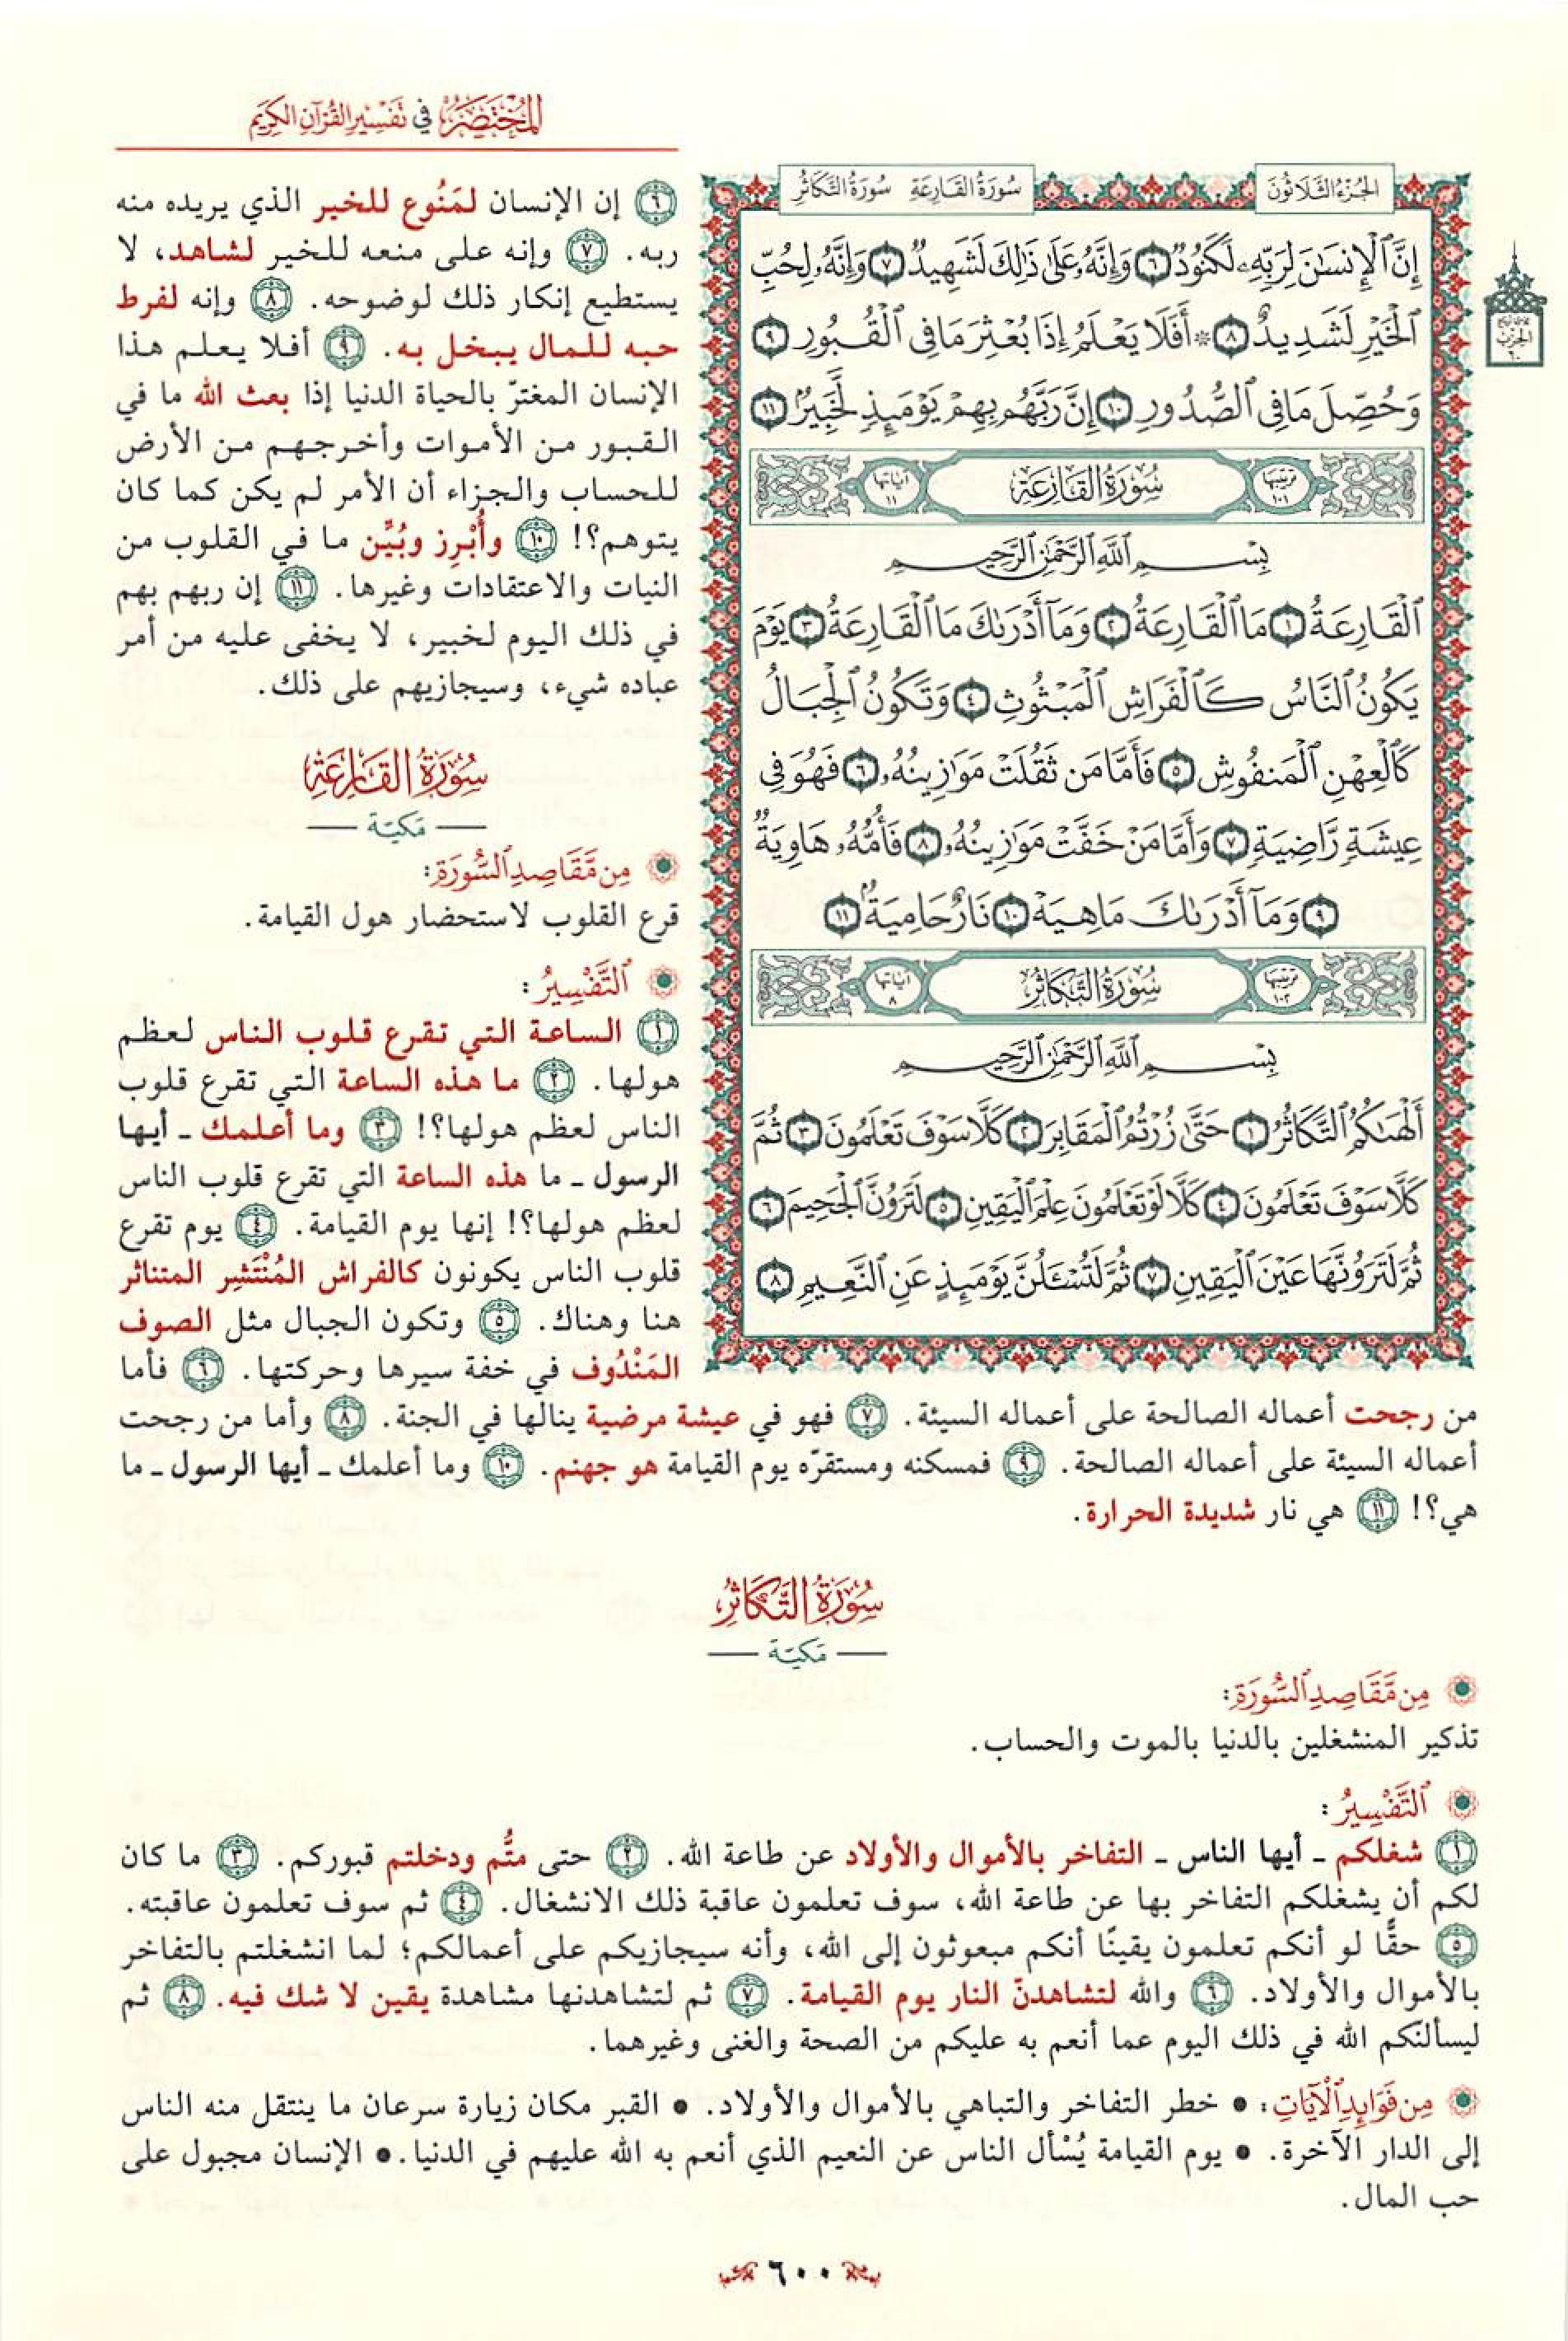 المختصر في تفسير القرآن الكريم
الجزء الثلاثون
سورة القارعة سورة التكاثر
إِنَّ ٱلْإِنسَٰنَ لِرَبِّهِۦ لَكَنُودٌ ٦ وَإِنَّهُۥ عَلَىٰ ذَٰلِكَ لَشَهِيدٌ ٧ وَإِنَّهُۥ لِحُبِّ
ٱلْخَيْرِ لَشَدِيدٌ ٨ ۞ أَفَلَا يَعْلَمُ إِذَا بُعْثِرَ مَا فِي ٱلْقُبُورِ ٩
وَحُصِّلَ مَا فِي ٱلصُّدُورِ ١٠ إِنَّ رَبَّهُم بِهِمْ يَوْمَئِذٍ لَّخَبِيرٌ ١١
ترتيبها ١٠١ سُورَةُ القَارِعَةِ آياتها ١١
بِسْمِ ٱللَّهِ ٱلرَّحْمَٰنِ ٱلرَّحِيمِ
ٱلْقَارِعَةُ ١ مَا ٱلْقَارِعَةُ ٢ وَمَآ أَدْرَىٰكَ مَا ٱلْقَارِعَةُ ٣ يَوْمَ
يَكُونُ ٱلنَّاسُ كَٱلْفَرَاشِ ٱلْمَبْثُوثِ ٤ وَتَكُونُ ٱلْجِبَالُ
كَٱلْعِهْنِ ٱلْمَنفُوشِ ٥ فَأَمَّا مَن ثَقُلَتْ مَوَٰزِينُهُۥ ٦ فَهُوَ فِي
عِيشَةٍ رَّاضِيَةٍ ٧ وَأَمَّا مَنْ خَفَّتْ مَوَٰزِينُهُۥ ٨ فَأُمُّهُۥ هَاوِيَةٌ
٩ وَمَآ أَدْرَىٰكَ مَا هِيَهْ ١٠ نَارٌ حَامِيَةٌۢ ١١
ترتيبها ١٠٢ سُورَةُ التَّكَاثُرِ آياتها ٨
بِسْمِ ٱللَّهِ ٱلرَّحْمَٰنِ ٱلرَّحِيمِ
أَلْهَىٰكُمُ ٱلتَّكَاثُرُ ١ حَتَّىٰ زُرْتُمُ ٱلْمَقَابِرَ ٢ كَلَّا سَوْفَ تَعْلَمُونَ ٣ ثُمَّ
كَلَّا سَوْفَ تَعْلَمُونَ ٤ كَلَّا لَوْ تَعْلَمُونَ عِلْمَ ٱلْيَقِينِ ٥ لَتَرَوُنَّ ٱلْجَحِيمَ ٦
ثُمَّ لَتَرَوُنَّهَا عَيْنَ ٱلْيَقِينِ ٧ ثُمَّ لَتُسْـَٔلُنَّ يَوْمَئِذٍ عَنِ ٱلنَّعِيمِ ٨
الحزب
٦٠
٦ إن الإنسان لمَنُوع للخير الذي يريده منه
ربه. ٧ وإنه على منعه للخير لشاهد، لا
يستطيع إنكار ذلك لوضوحه. ٨ وإنه لفرط
حبه للمال يبخل به. ٩ أفلا يعلم هذا
الإنسان المغترّ بالحياة الدنيا إذا بعث الله ما في
القبور من الأموات وأخرجهم من الأرض
للحساب والجزاء أن الأمر لم يكن كما كان
يتوهم؟! ١٠ وأُبْرِز وبُيِّن ما في القلوب من
النيات والاعتقادات وغيرها. ١١ إن ربهم بهم
في ذلك اليوم لخبير، لا يخفى عليه من أمر
عباده شيء، وسيجازيهم على ذلك.
سُورَةُ القَارِعَةِ
— مَكيّة —
مِن مَّقَاصِدِ ٱلسُّورَةِ:
قرع القلوب لاستحضار هول القيامة.
ٱلتَّفْسِيرُ:
١ الساعة التي تقرع قلوب الناس لعظم
هولها. ٢ ما هذه الساعة التي تقرع قلوب
الناس لعظم هولها؟! ٣ وما أعلمك ـ أيها
الرسول ـ ما هذه الساعة التي تقرع قلوب الناس
لعظم هولها؟! إنها يوم القيامة. ٤ يوم تقرع
قلوب الناس يكونون كالفراش المُنْتَشِر المتناثر
هنا وهناك. ٥ وتكون الجبال مثل الصوف
المَنْدُوف في خفة سيرها وحركتها. ٦ فأما
من رجحت أعماله الصالحة على أعماله السيئة. ٧ فهو في عيشة مرضية ينالها في الجنة. ٨ وأما من رجحت
أعماله السيئة على أعماله الصالحة. ٩ فمسكنه ومستقرّه يوم القيامة هو جهنم. ١٠ وما أعلمك ـ أيها الرسول ـ ما
هي؟! ١١ هي نار شديدة الحرارة.
سُورَةُ التَّكَاثُرِ
— مَكيّة —
مِن مَّقَاصِدِ ٱلسُّورَةِ:
تذكير المنشغلين بالدنيا بالموت والحساب.
ٱلتَّفْسِيرُ:
١ شغلكم ـ أيها الناس ـ التفاخر بالأموال والأولاد عن طاعة الله. ٢ حتى متُّم ودخلتم قبوركم. ٣ ما كان
لكم أن يشغلكم التفاخر بها عن طاعة الله، سوف تعلمون عاقبة ذلك الانشغال. ٤ ثم سوف تعلمون عاقبته.
٥ حقًّا لو أنكم تعلمون يقينًا أنكم مبعوثون إلى الله، وأنه سيجازيكم على أعمالكم؛ لما انشغلتم بالتفاخر
بالأموال والأولاد. ٦ والله لتشاهدنّ النار يوم القيامة. ٧ ثم لتشاهدنها مشاهدة يقين لا شك فيه. ٨ ثم
ليسألنّكم الله في ذلك اليوم عما أنعم به عليكم من الصحة والغنى وغيرهما.
مِن فَوَائِدِ ٱلْآيَاتِ: • خطر التفاخر والتباهي بالأموال والأولاد. • القبر مكان زيارة سرعان ما ينتقل منه الناس
إلى الدار الآخرة. • يوم القيامة يُسْأل الناس عن النعيم الذي أنعم به الله عليهم في الدنيا. • الإنسان مجبول على
حب المال.
٦٠٠